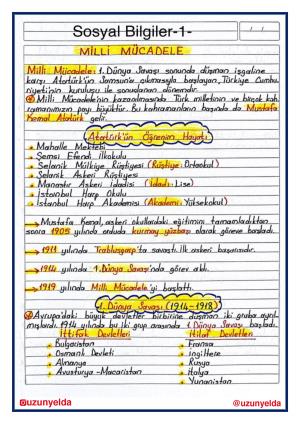 Sosyal Bilgiler-1-
/ /
MİLLİ MÜCADELE
Milli Mücadele: 1. Dünya Savaşı sonunda düşman işgaline
karşı Atatürk'ün Samsun'a çıkmasıyla başlayan, Türkiye Cumhu-
riyeti'nin kuruluşu ile sonuçlanan dönemdir.
Milli Mücadele'nin kazanılmasında Türk milletinin ve birçok kah-
ramanımızın payı büyüktür. Bu kahramanların başında da Mustafa
Kemal Atatürk gelir.
Atatürk'ün Öğrenim Hayatı
Mahalle Mektebi
Şemsi Efendi İlkokulu
Selanik Mülkiye Rüştiyesi (Rüştiye: Ortaokul)
Selanik Askeri Rüştiyesi
Manastır Askeri İdadisi (İdadi: Lise)
İstanbul Harp Okulu
İstanbul Harp Akademisi (Akademi: Yüksekokul)
Mustafa Kemal, askeri okullardaki eğitimini tamamladıktan
sonra 1905 yılında orduda kurmay yüzbaşı olarak göreve başladı.
1911 yılında Trablusgarp'ta savaştı. İlk askeri başarısıdır.
1914 yılında 1. Dünya Savaşı'nda görev aldı.
1919 yılında Milli Mücadele'yi başlattı.
1. Dünya Savaşı (1914-1918)
Avrupa'daki büyük devletler birbirine düşman iki gruba ayrıl-
mışlardı. 1914 yılında bu iki grup arasında 1. Dünya Savaşı başladı.
İttifak Devletleri İtilaf Devletleri
Bulgaristan Fransa
Osmanlı Devleti İngiltere
Almanya Rusya
Avusturya-Macaristan İtalya
Yunanistan
@uzunyelda @uzunyelda